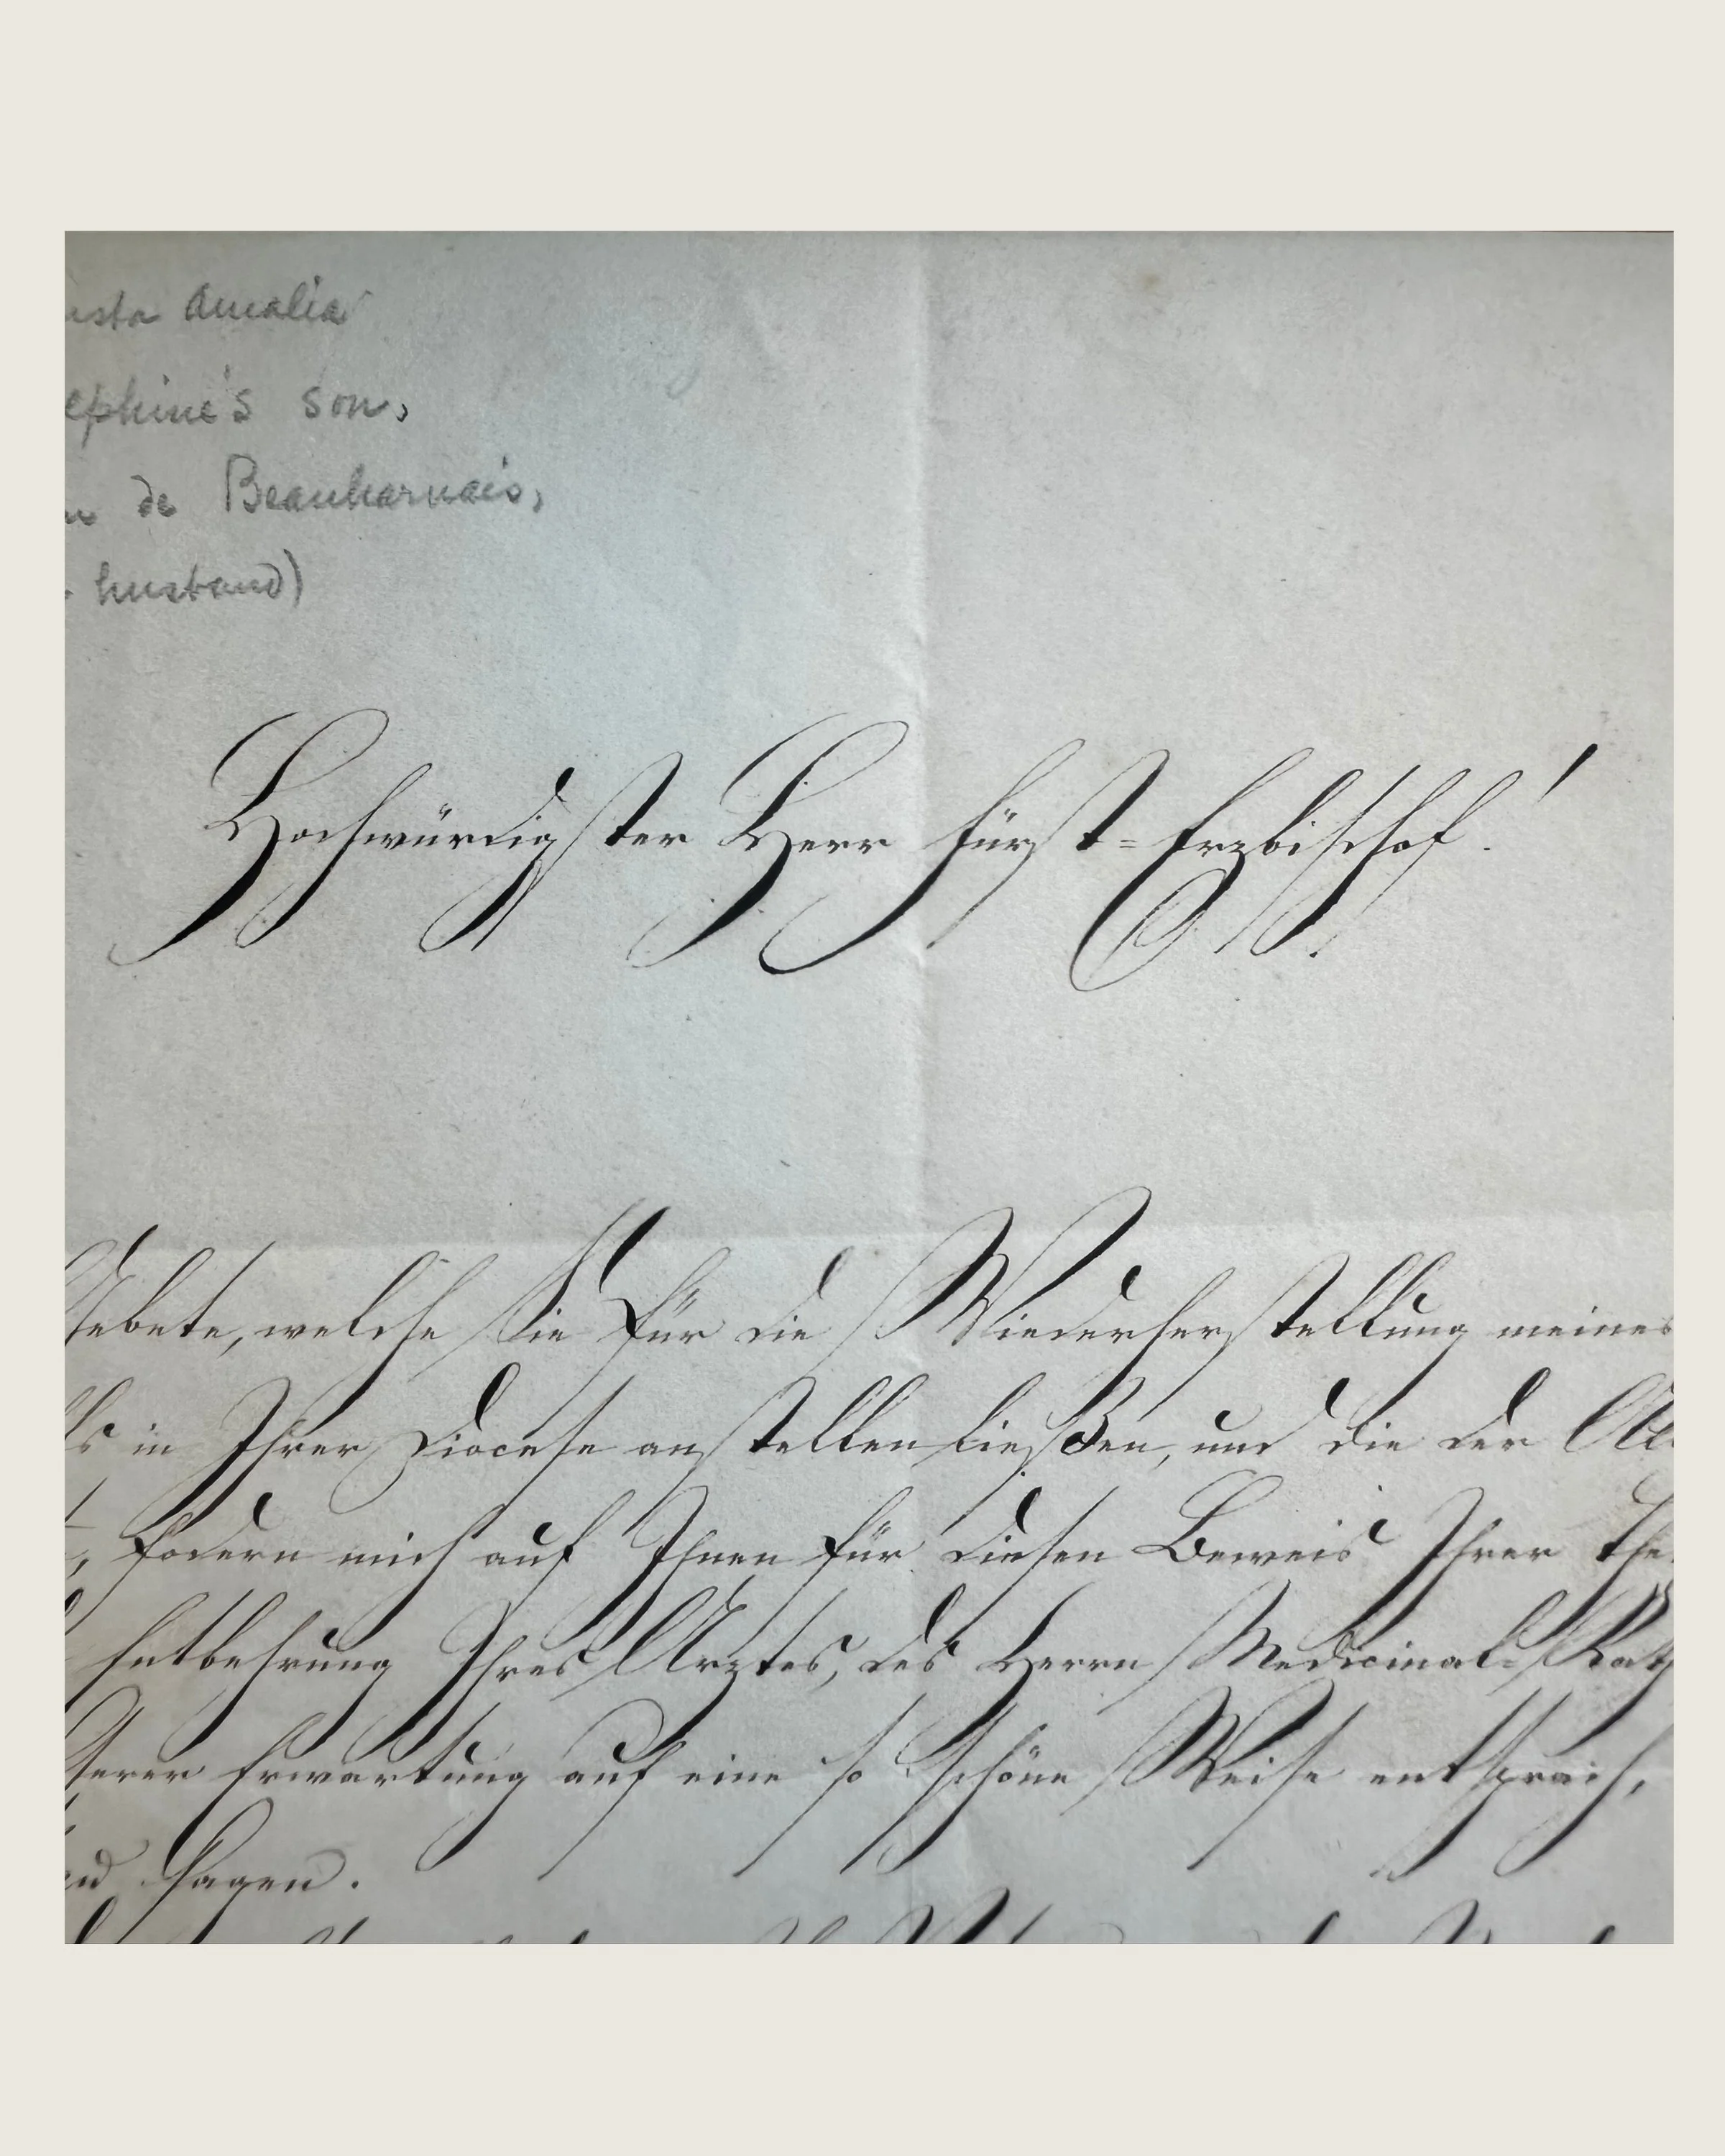 usta Amalia
ephine's son,
de Beauharnais,
husband)
Hochwürdigster Herr Fürst=Erzbischof!
Gebete, welche Sie für die Wiederherstellung meines
in Ihrer Diocese anstellen ließen, und die der
fodern mich auf Ihnen für diesen Beweis Ihrer
Entbehrung Ihres Arztes, des Herrn Medicinal=Rath
serer Erwartung auf eine so schöne Weise entsprach,
sagen.